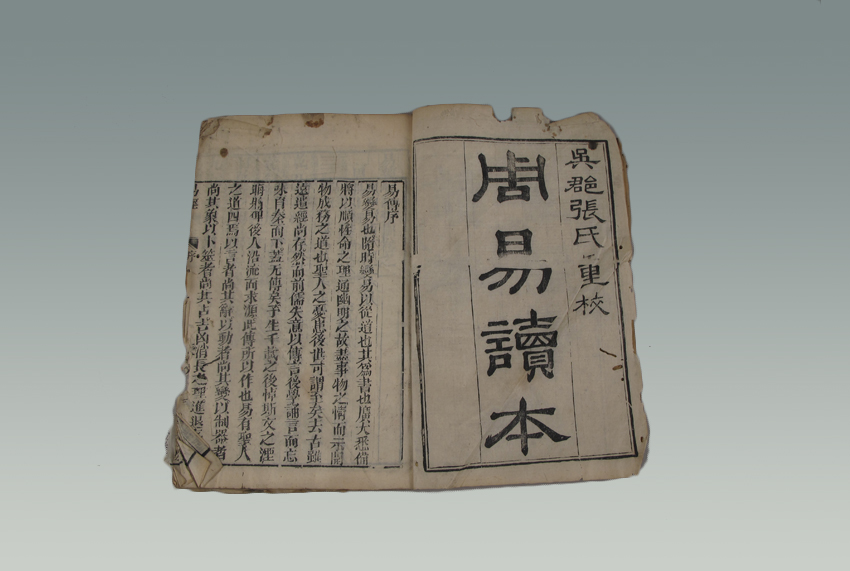 吳郡張氏重校
周易讀本
易傳序
易變易也隨時變易以從道也其爲書也廣大悉備
將以順性命之理通幽明之故盡事物之情而示開
物成務之道也聖人之憂患後世可謂至矣去古雖
遠遺經尚存然而前儒失意以傳言後學誦言而忘
味自秦而下蓋无傳矣予生千載之後悼斯文之湮
晦將俾後人沿流而求源此傳所以作也易有聖人
之道四焉以言者尚其辭以動者尚其變以制器者
尚其象以卜筮者尚其占吉凶消長之理進退